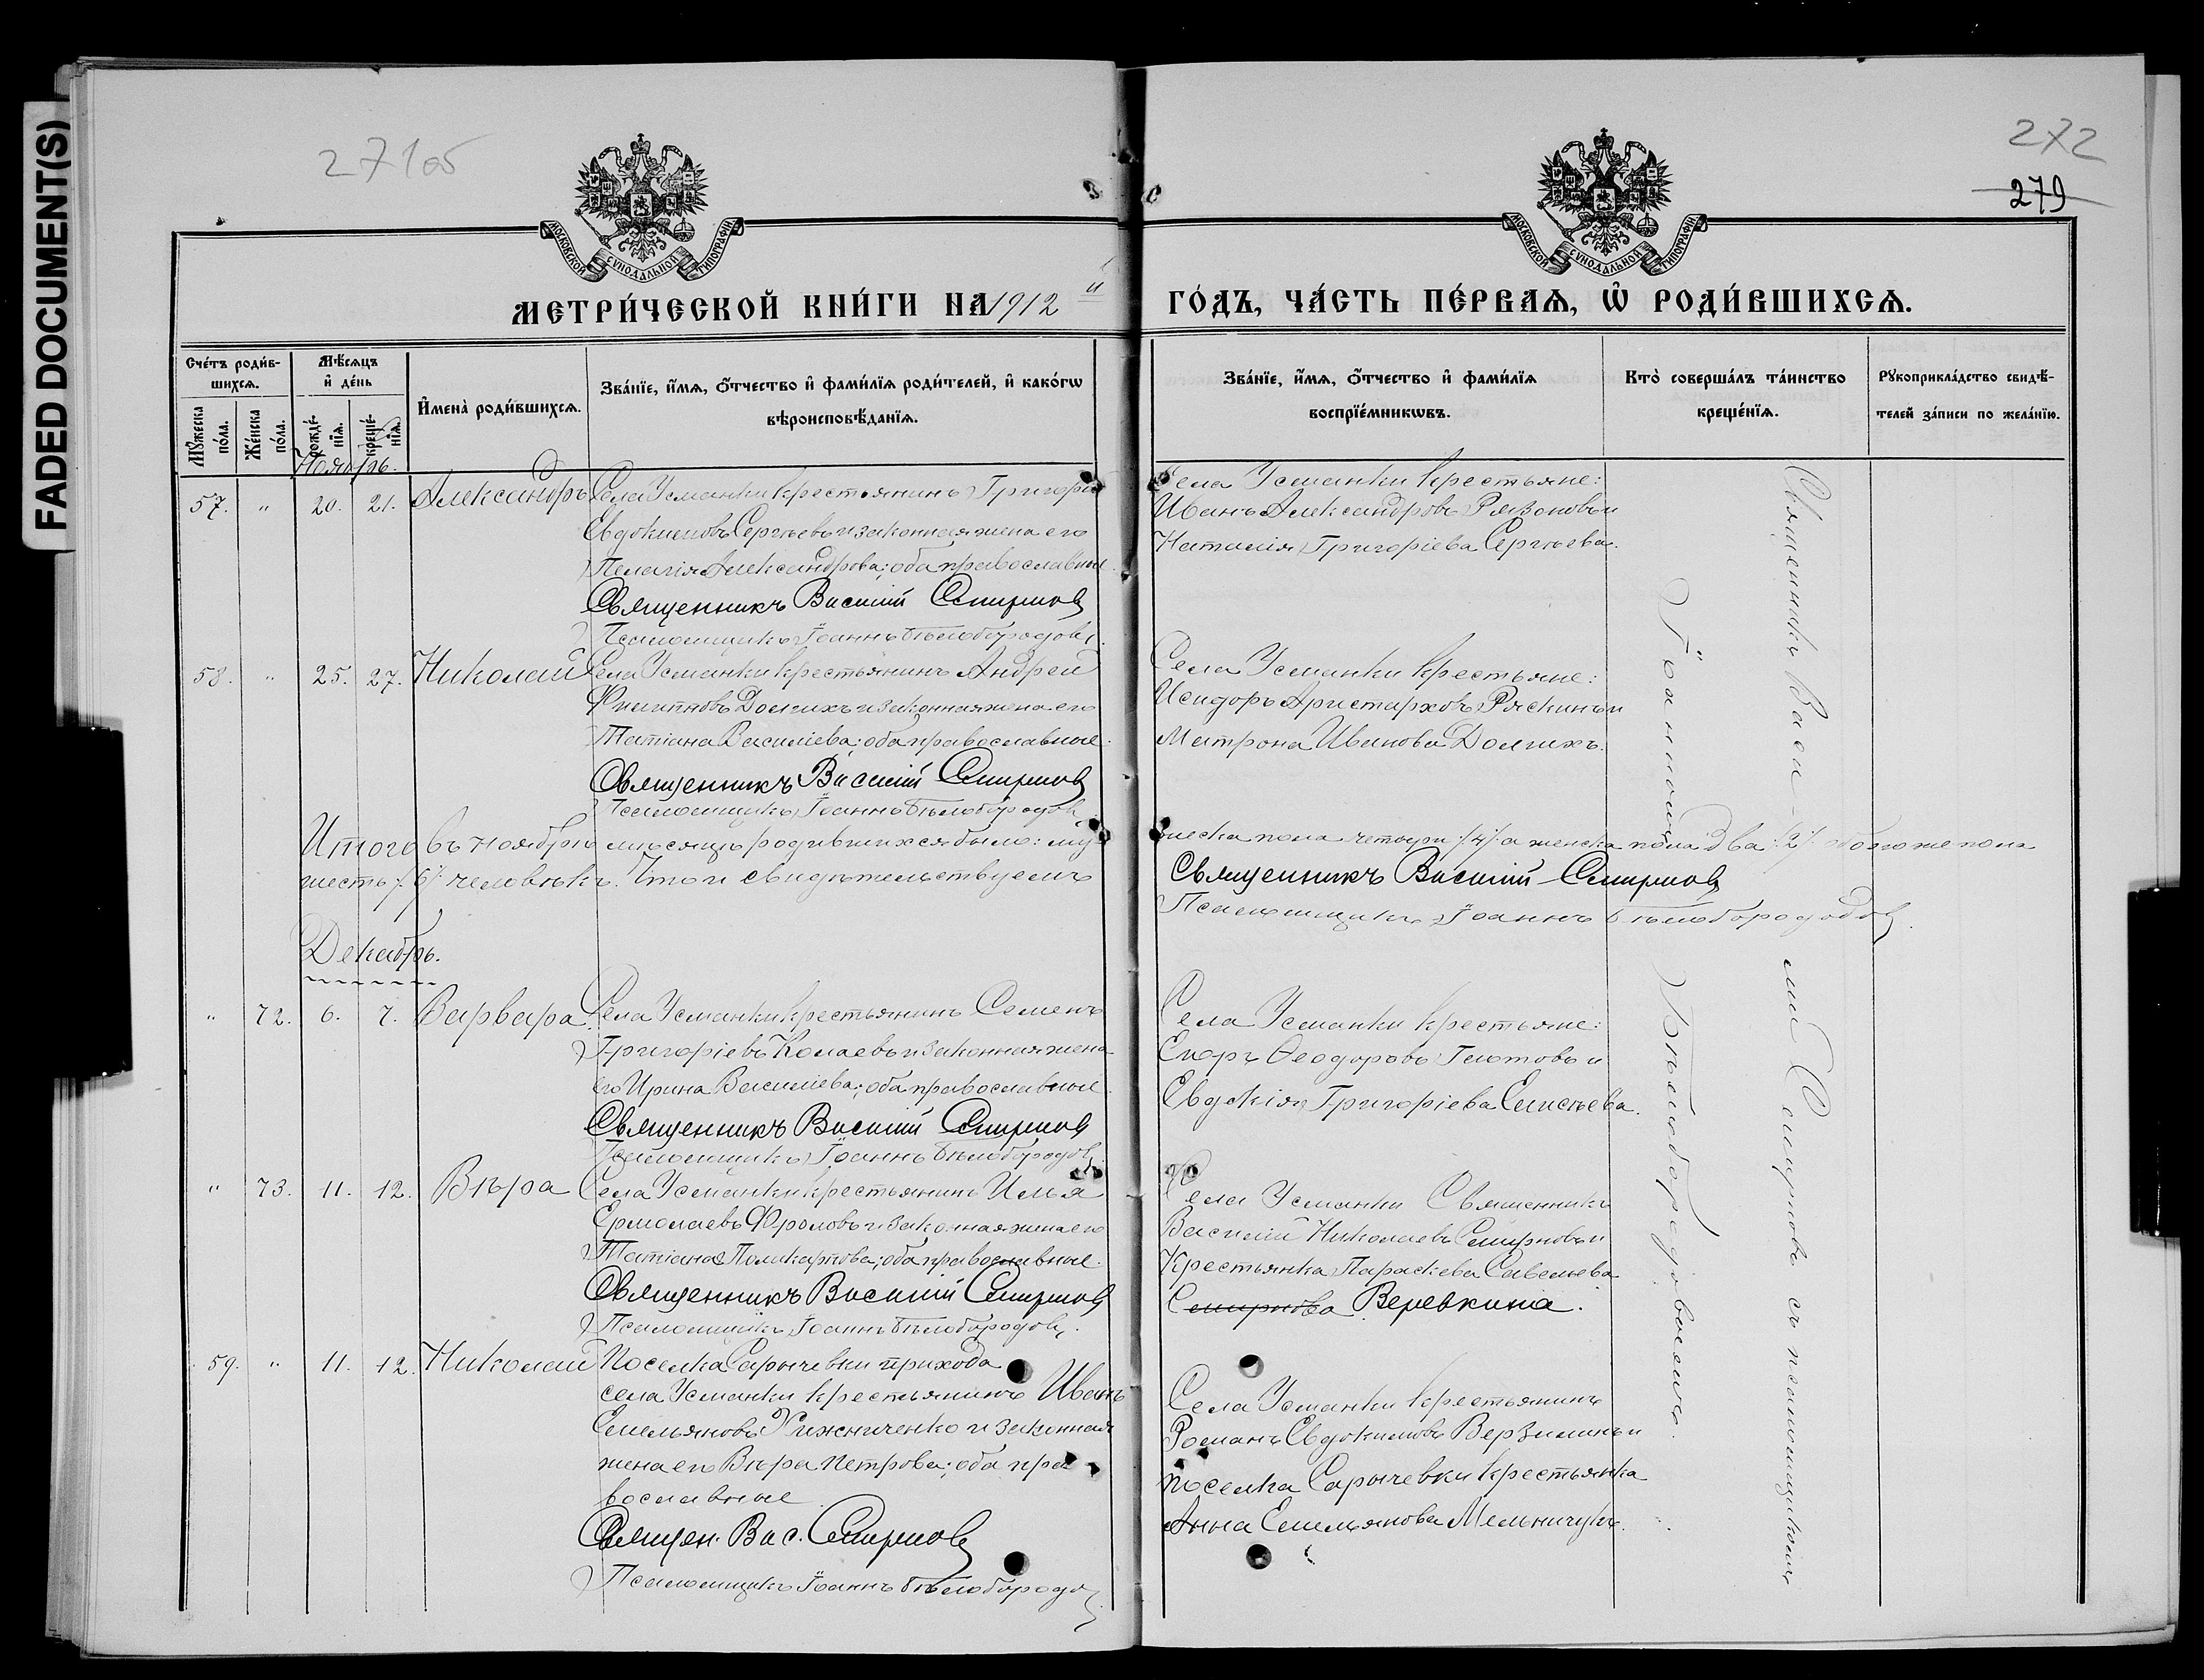 FADED DOCUMENT(S)
271об
272
279
МОСКОВСКОЙ СѴНОДАЛЬНОЙ ТИПОГРАФІИ
МОСКОВСКОЙ СѴНОДАЛЬНОЙ ТИПОГРАФІИ
МЕТРИ́ЧЕСКОЙ КНИ́ГИ НА 1912й
ГО́ДЪ, ЧА́СТЬ ПЕ́РВАѦ, Ѡ҆ РОДИ́ВШИХСѦ.
Сче́тъ роди́в-
шихсѧ.
Мꙋ́жеска по́ла.
Же́нска по́ла.
Мѣ́сѧцъ
и҆ де́нь
рожде́-нїѧ.
креще́-нїѧ.
И҆мена̀ роди́вшихсѧ.
Зва́нїе, и҆́мѧ, ѻ҆́тчество и҆ фами́лїѧ роди́телей, и҆ како́гѡ
вѣроисповѣ́данїѧ.
Зва́нїе, и҆́мѧ, ѻ҆́тчество и҆ фами́лїѧ
воспрїе́мникѡвъ.
Кто̀ соверша́лъ та́инство
креще́нїѧ.
Рꙋкоприкла́дство свидѣ́-
телей за́писи по жела́нїю.
Ноябрь.
57. " 20. 21. Александръ Села Усманки крестьянинъ Григорій
Евдокимовъ Сергѣевъ и законная жена его
Пелагія Александрова; оба православные.
Священникъ Василій Смирновъ
Псаломщикъ Іоаннъ Бѣлобородовъ.
Села Усманки крестьяне:
Иванъ Александровъ Рязоновъ и
Наталія Григоріева Сергѣева.
58. " 25. 27. Николай Села Усманки крестьянинъ Андрей
Филипповъ Долгихъ и законная жена его
Татіана Василіева; оба православные.
Священникъ Василій Смирновъ
Псаломщикъ Іоаннъ Бѣлобородовъ
Села Усманки крестьяне:
Исидоръ Аристарховъ Ряскинъ и
Матрона Иванова Долгихъ.
Итого въ ноябрѣ мѣсяцѣ родившихся было: му-
жеска пола четыри /4/ а женска пола два /2/ обоего же пола
шесть /6/ человѣкъ. Что и свидѣтельствуемъ
Священникъ Василій Смирновъ
Псаломщикъ Іоаннъ Бѣлобородовъ.
Декабрь.
" 72. 6. 7. Варвара. Села Усманки крестьянинъ Семенъ
Григоріевъ Колаевъ и законная жена
его Ирина Василіева; оба православные.
Священникъ Василій Смирновъ
Псаломщикъ Іоаннъ Бѣлобородовъ
Села Усманки крестьяне:
Егоръ Ѳеодоровъ Глотовъ и
Евдокія Григоріева Елисѣева.
" 73. 11. 12. Вѣра Села Усманки крестьянинъ Илья
Ермолаевъ Фроловъ и законная жена его
Татіана Поликарпова; оба православные.
Священникъ Василій Смирновъ
Псаломщикъ Іоаннъ Бѣлобородовъ.
Села Усманки Священникъ
Василій Николаевъ Смирновъ и
Крестьянка Параскева Савельева
Смирнова Веревкина.
59. " 11. 12. Николай Поселка Сарычевки прихода
села Усманки крестьянинъ Иванъ
Емельяновъ Хижниченко и законная
жена его Вѣра Петрова; оба пра-
вославные.
Священ. Вас. Смирновъ
Псаломщикъ Іоаннъ Бѣлобородовъ
Села Усманки крестьянинъ
Романъ Евдокимовъ Верзилинъ и
поселка Сарычевки крестьянка
Анна Емельянова Мельничукъ.
Священникъ Васи-лій Смирновъ съ псаломщикомъ
Іоанномъ Бѣлобородовымъ.